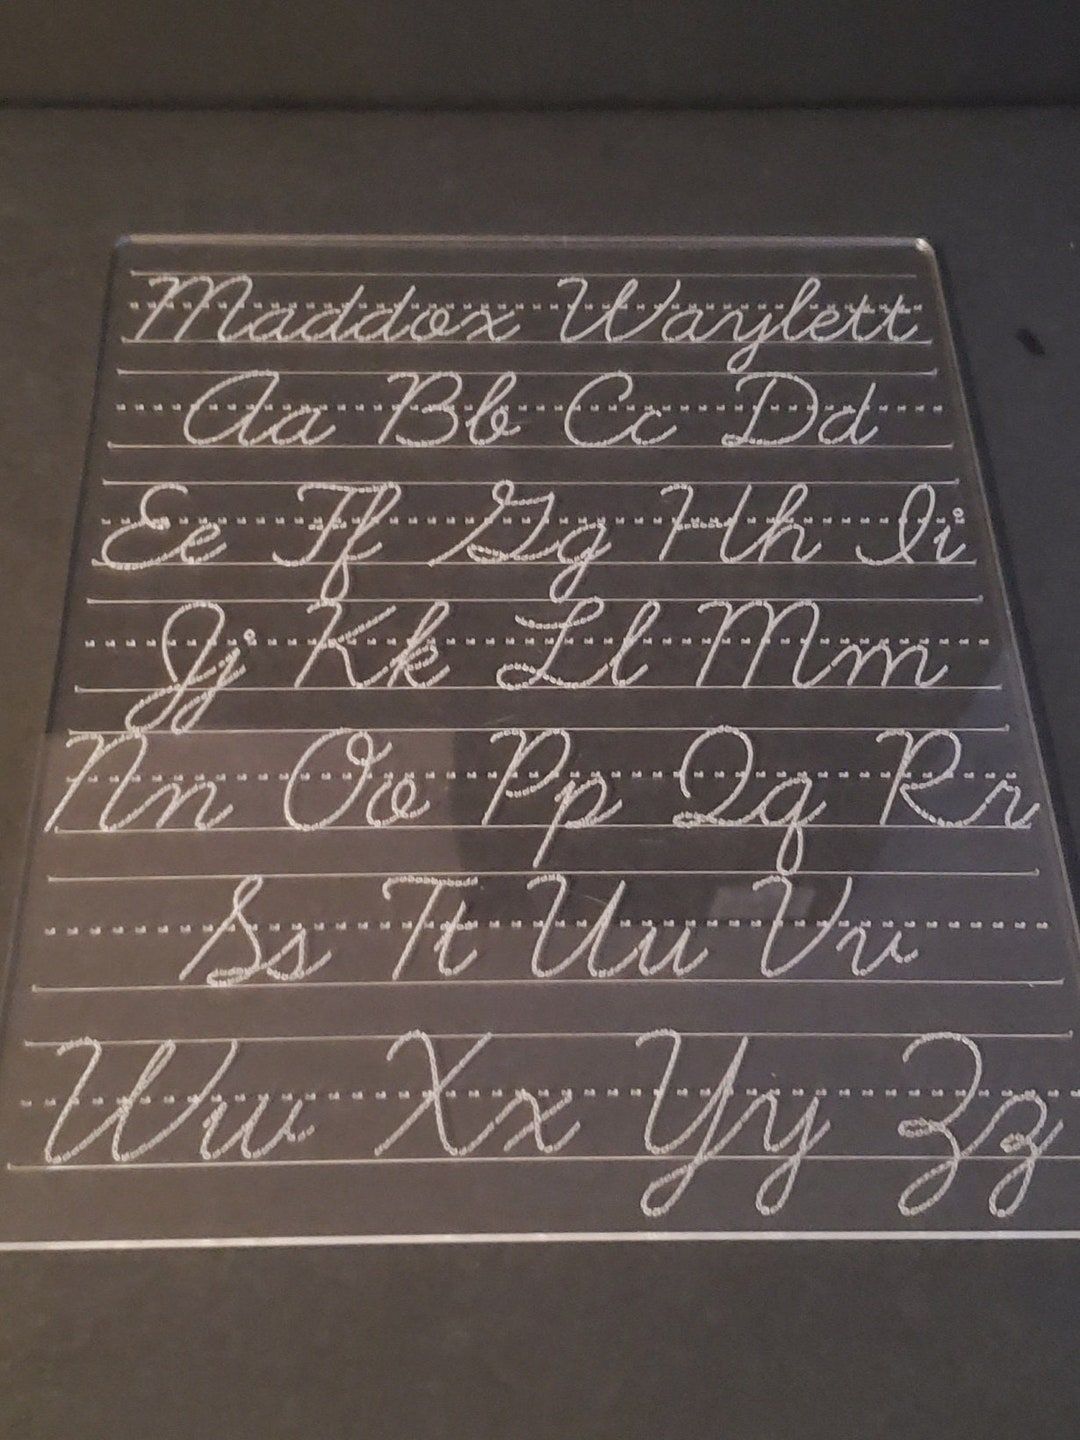 Maddox Waylett
Aa Bb Cc Dd
Ee Ff Gg Hh Ii
Jj Kk Ll Mm
Nn Oo Pp Qq Rr
Ss Tt Uu Vv
Ww Xx Yy Zz